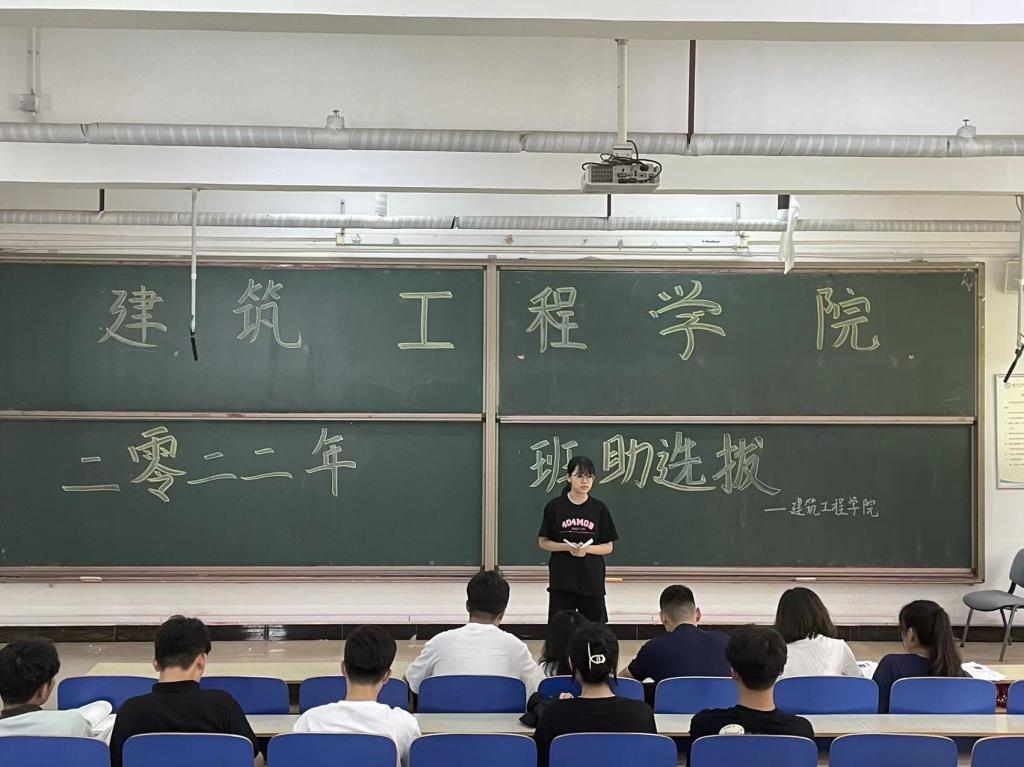 建筑工程学院
二零二二年 班助选拔
—建筑工程学院
404MOB